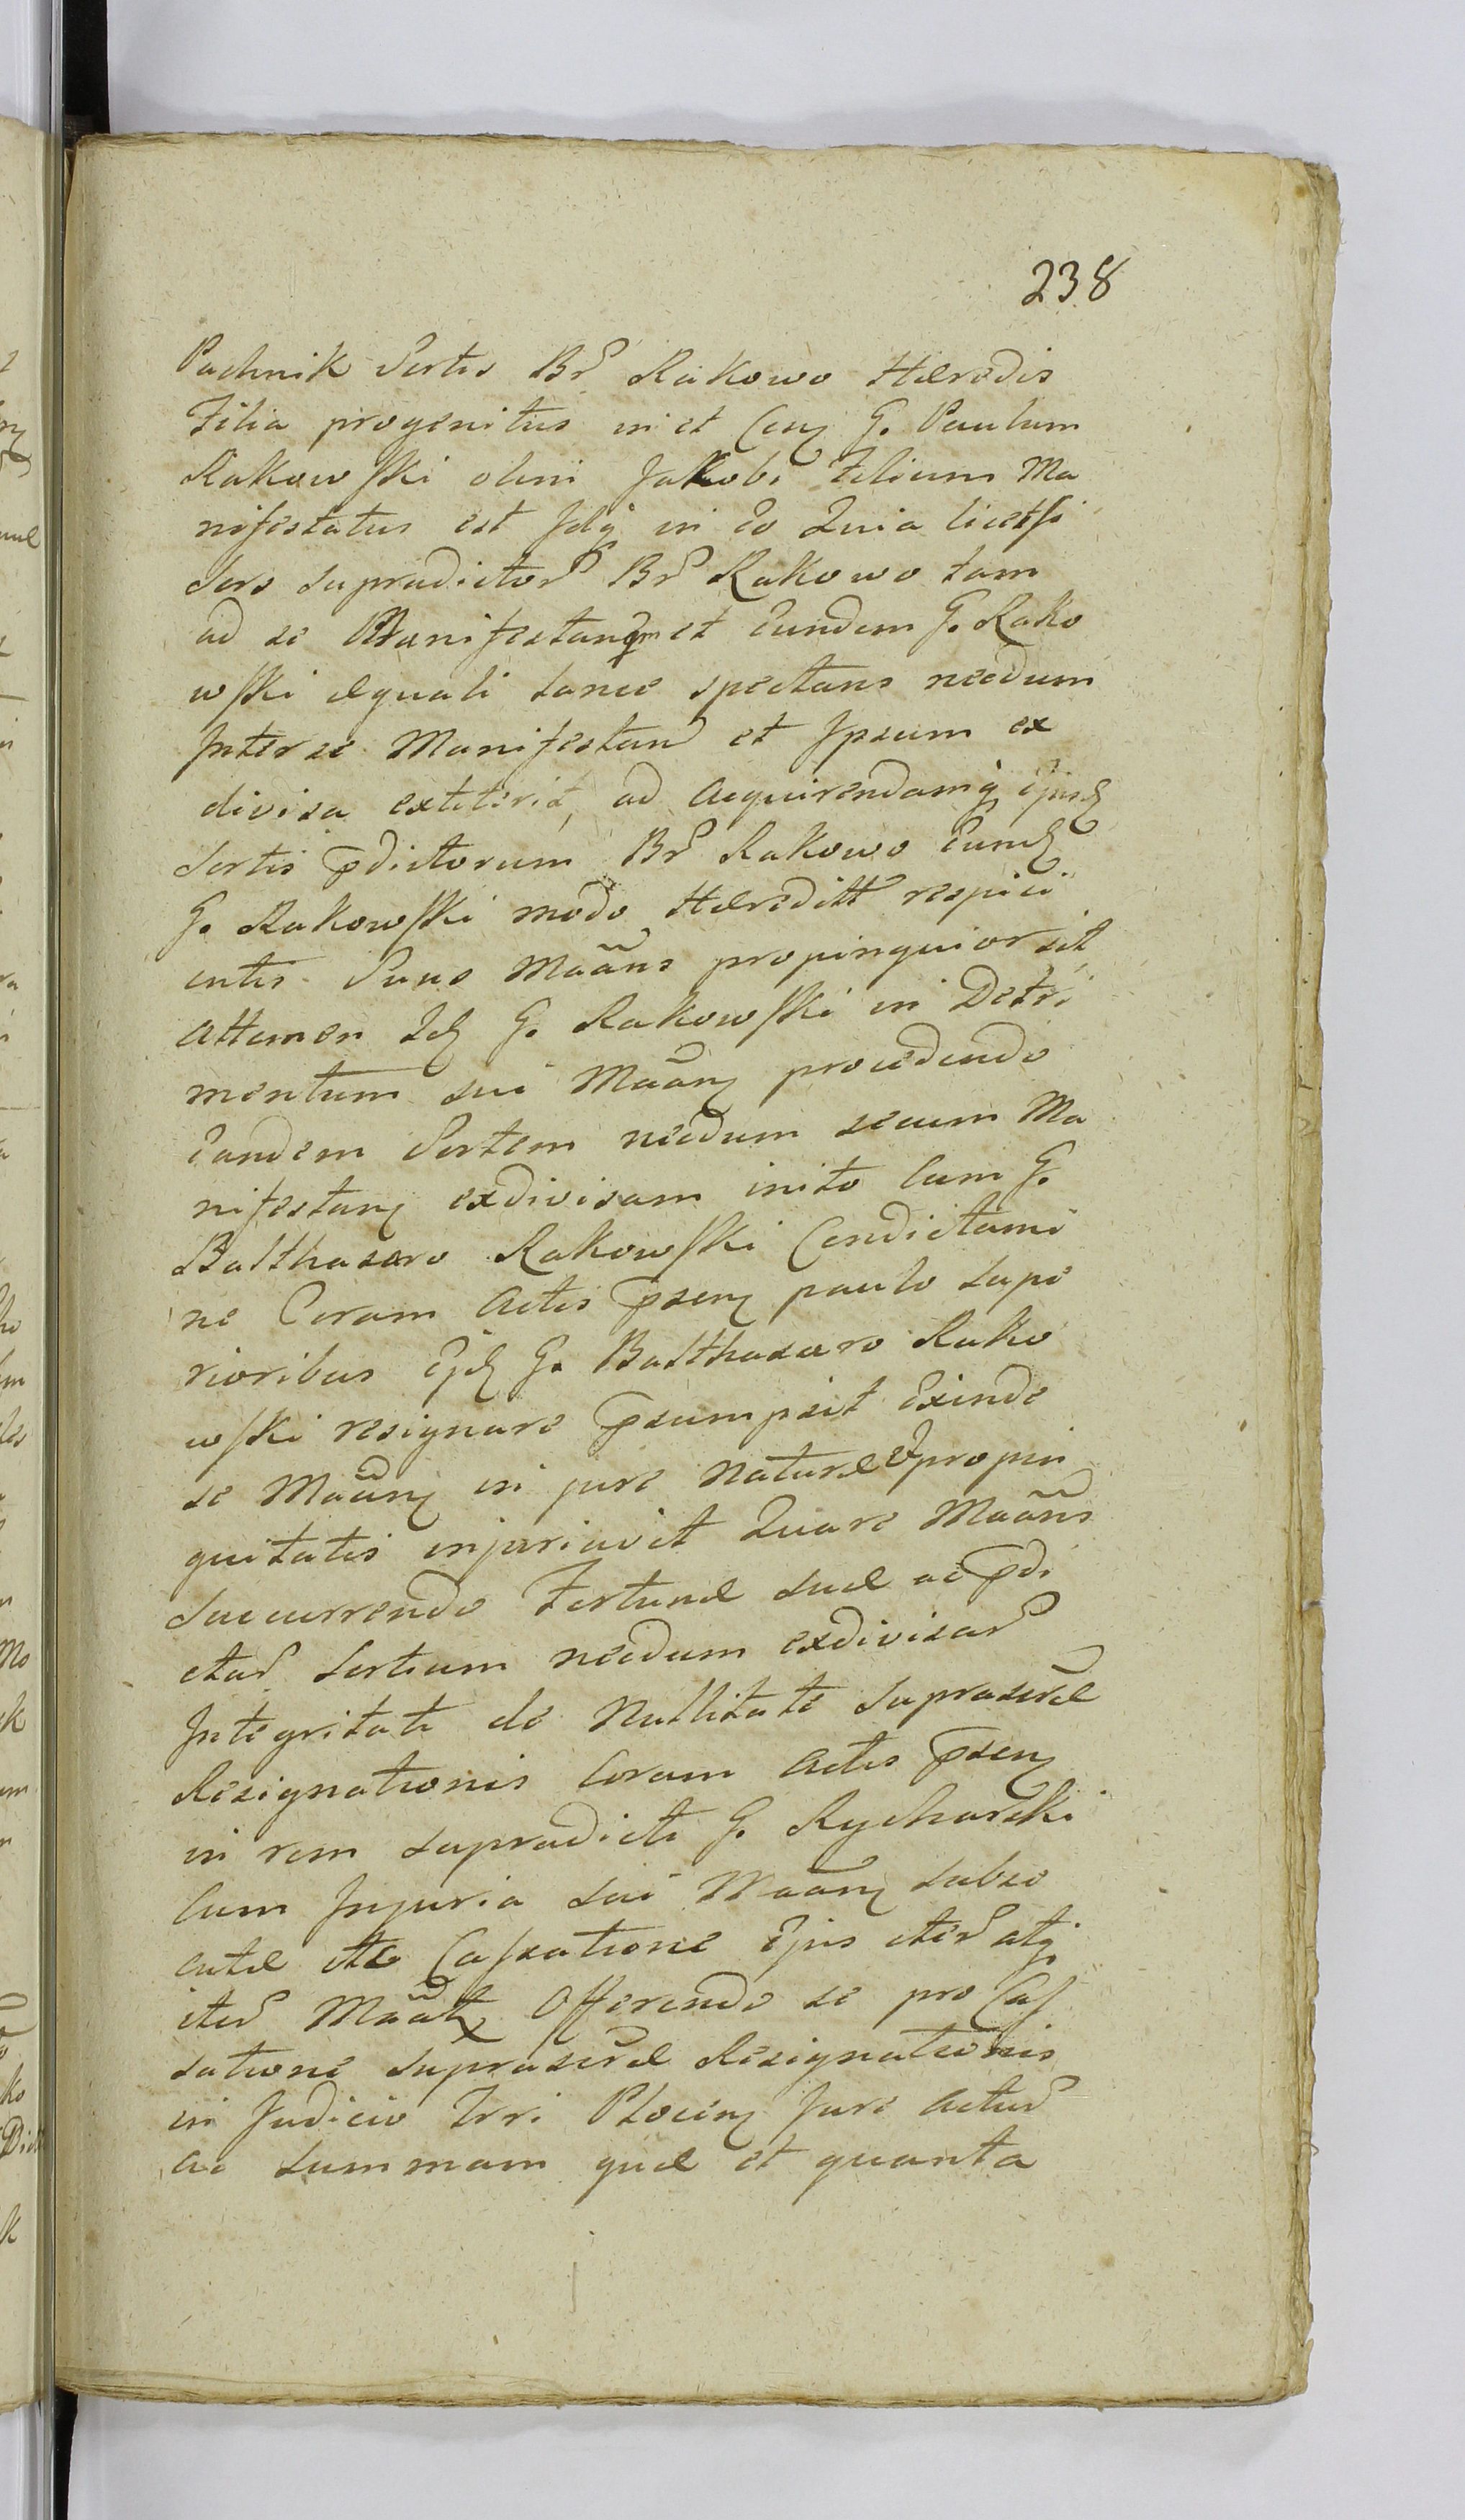 238
Pachnik Sortis Br̃ Rakowo Hæredis
Filia progenitus in et Con̄ G. Paulum
Rakowski olim Jakobi Filium Ma
nifestatus est Idq̃ in Eo Quia licetsi
Sors supradictor̃ Br̃ Rakowo tam
ad se Manifestan qm et Eundem G. Rako
wski æquali lance spectans necdum
Inter se Manifestan̄ et Ipsum ex
divisa extiterit, ad acquirendamq̃ Ejusd̄
Sortis p̄dictorum Br̃ Rakowo Eund̄
G. Rakowski modo Hæreditt̃ respici
entis Suus Mãans propinquior sit
Attamen Id̄ G. Rakowski in Detri
mentum sui Mãan̄ procedendo
Eandem Sortem necdum secum Ma
nifestan̄ exdivisam inito Cum G.
Balthasaro Rakowski Condictami
ne Coram Actis p̄sen̄ paulo supe
rioribus Ejd̄ G. Balthasaro Rako
wski resignare p̄sumpsit Exinde
se Mãan̄ in jure Naturæ & propin
quitatis injuriavit Quare Mãans
Succurrendo Fortunæ suæ ac p̄di
ctar̃ Sortium necdum exdivisar̃
Integritati de Nullitate suprascr̃æ
Resignationis Coram Actis p̄sen̄
in rem supradicti G. Rycharski
Cum Injuria sui Mãan̄ subse
cutæ Cassatione Ejus iter̃ atq̃
iter̃ Mãat̃ Offerendo se pro Cas
satione suprascr̃æ Resignationis
in Judicio Trri Plocen̄ Jure Actur̃
ac summam quæ et quanta